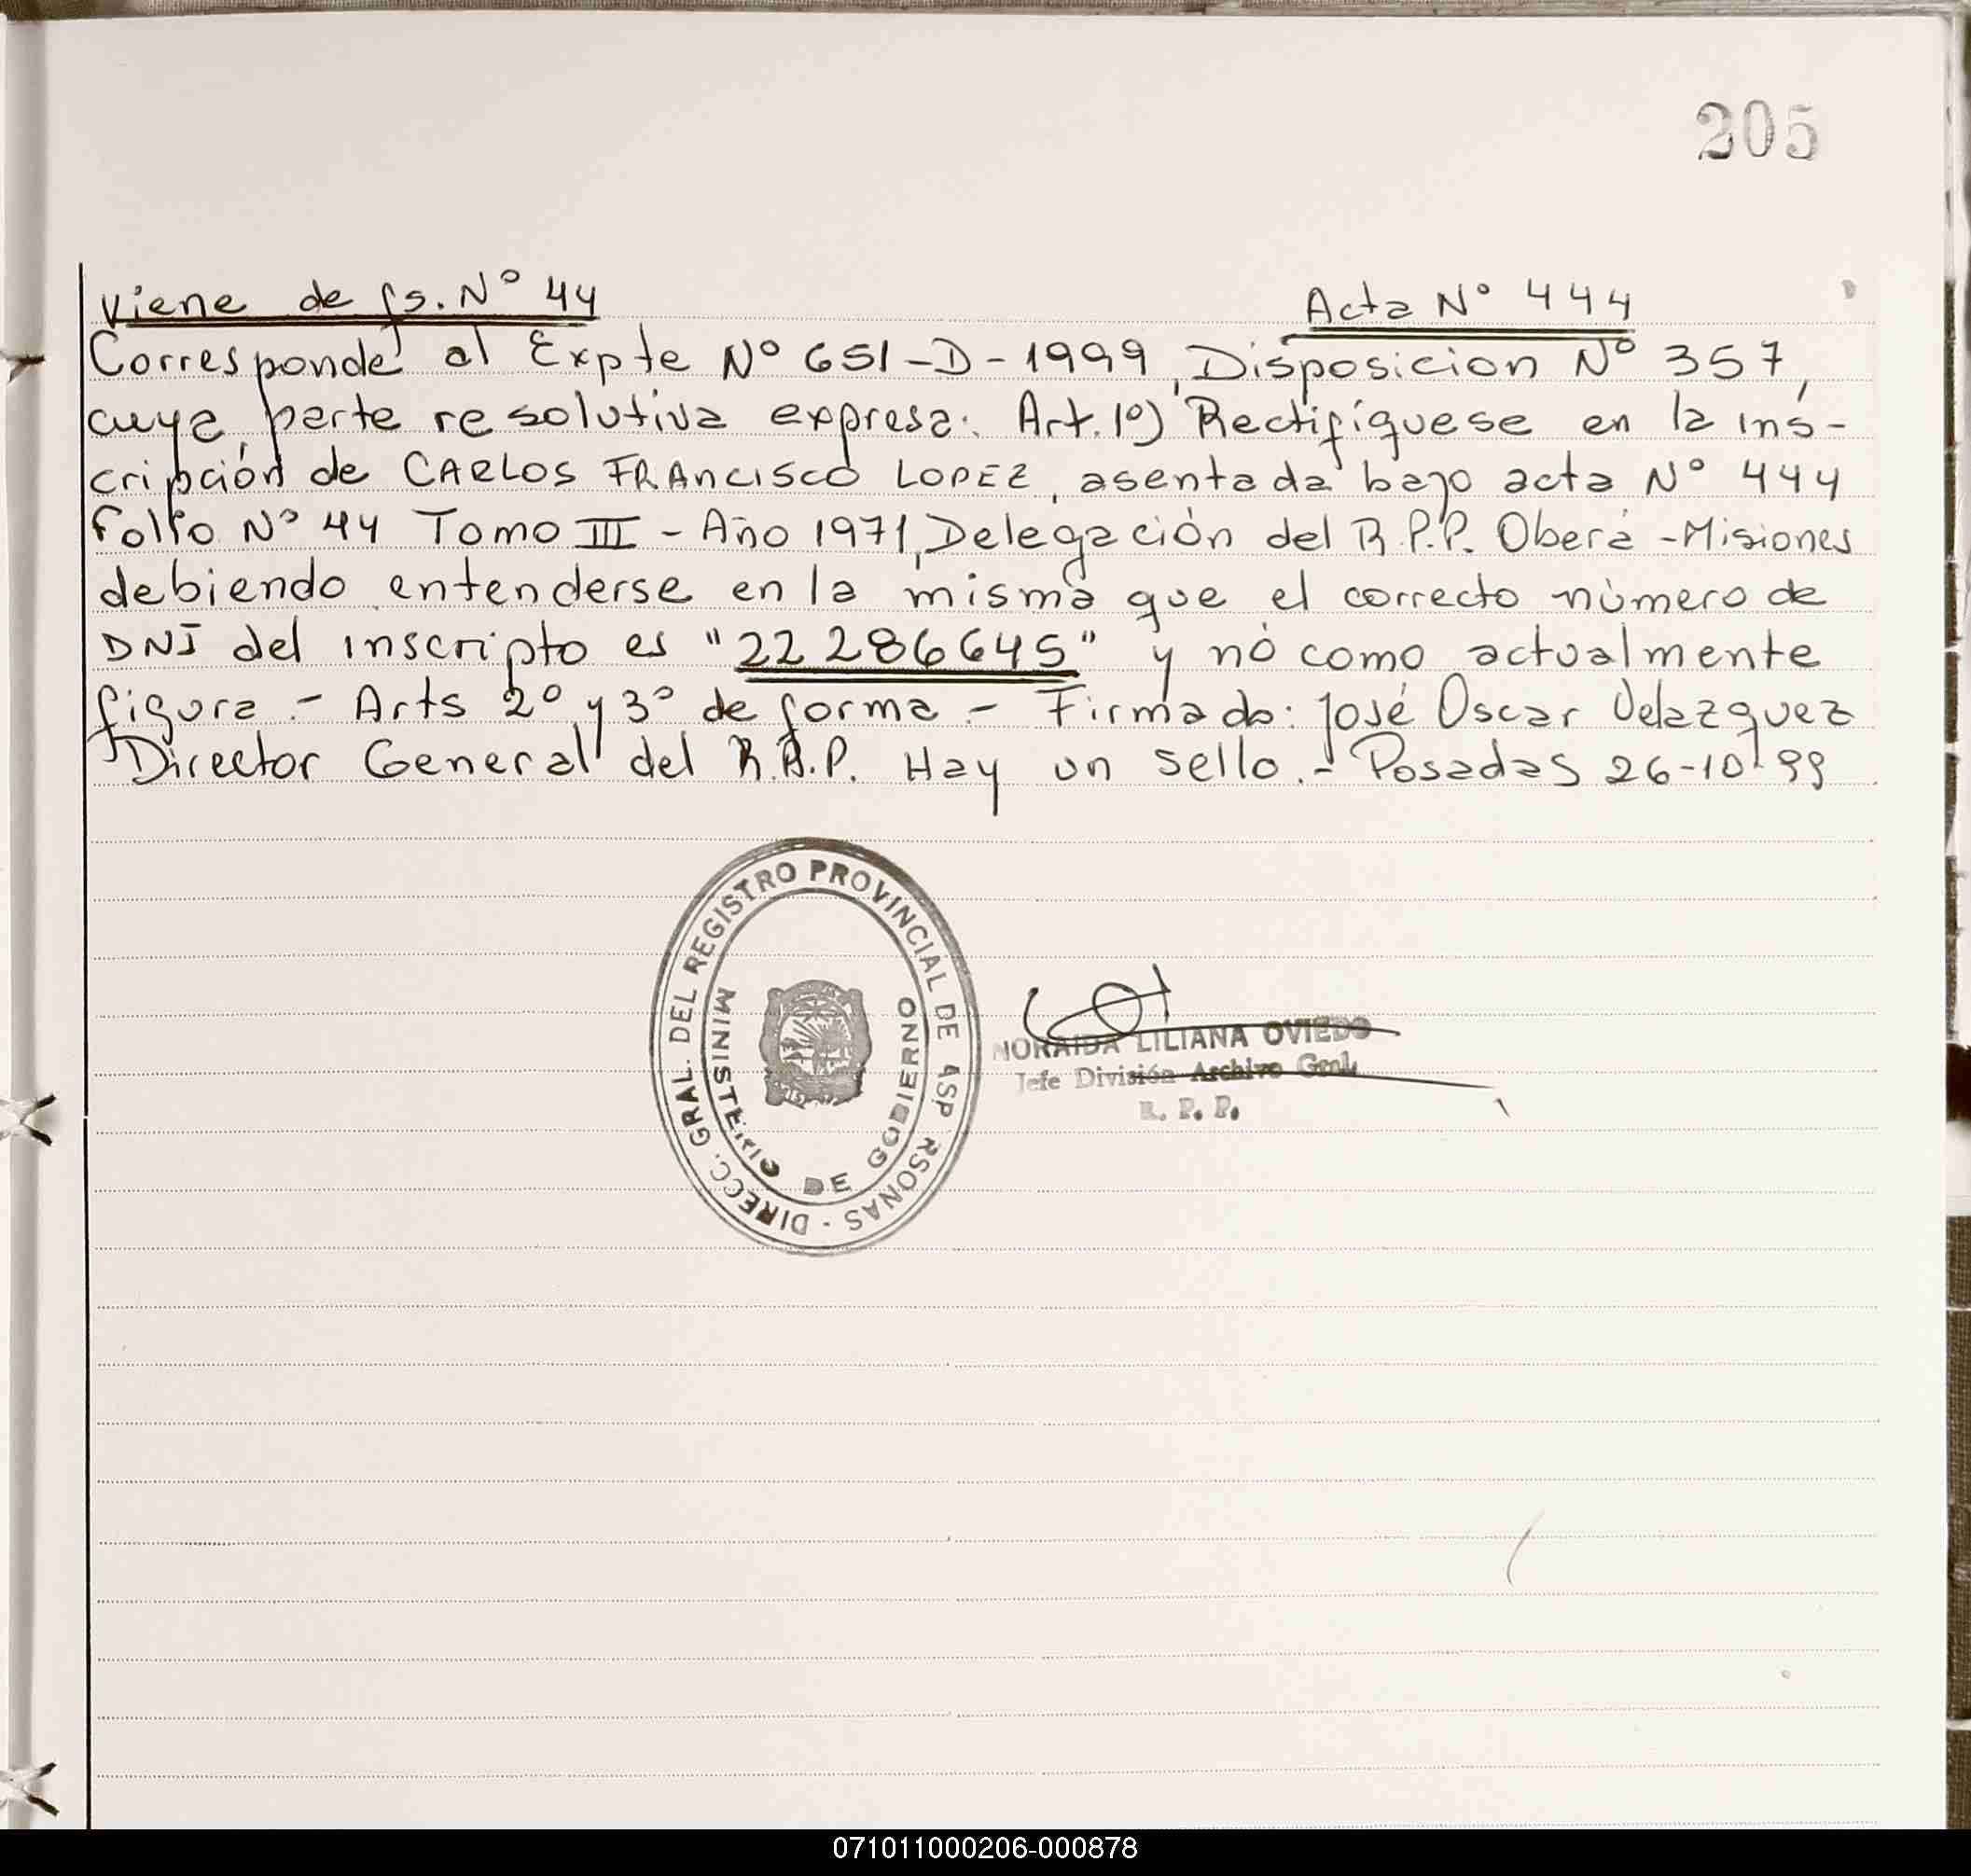 205
Viene de fs. Nº 44
Acta Nº 444
Corresponde al Expte Nº 651-D-1999, Disposicion Nº 357,
cuya parte resolutiva expresa: Art. 1º) Rectifíquese en la ins-
cripción de CARLOS FRANCISCO LOPEZ, asentada bajo acta Nº 444
Folio Nº 44 Tomo III - Año 1971, Delegación del R.P.P. Oberá - Misiones
debiendo entenderse en la misma que el correcto número de
DNI del inscripto es "22286645" y nó como actualmente
figura.- Arts 2º y 3º de forma - Firmado: José Oscar Velazquez
Director General del R.P.P. Hay un sello.- Posadas 26-10-99
DIRECC. GRAL. DEL REGISTRO PROVINCIAL DE LAS P RSONAS -
MINISTERIO DE GOBIERNO
NORAIDA LILIANA OVIEDO
Jefe División Archivo Gral.
R. P. P.
071011000206-000878